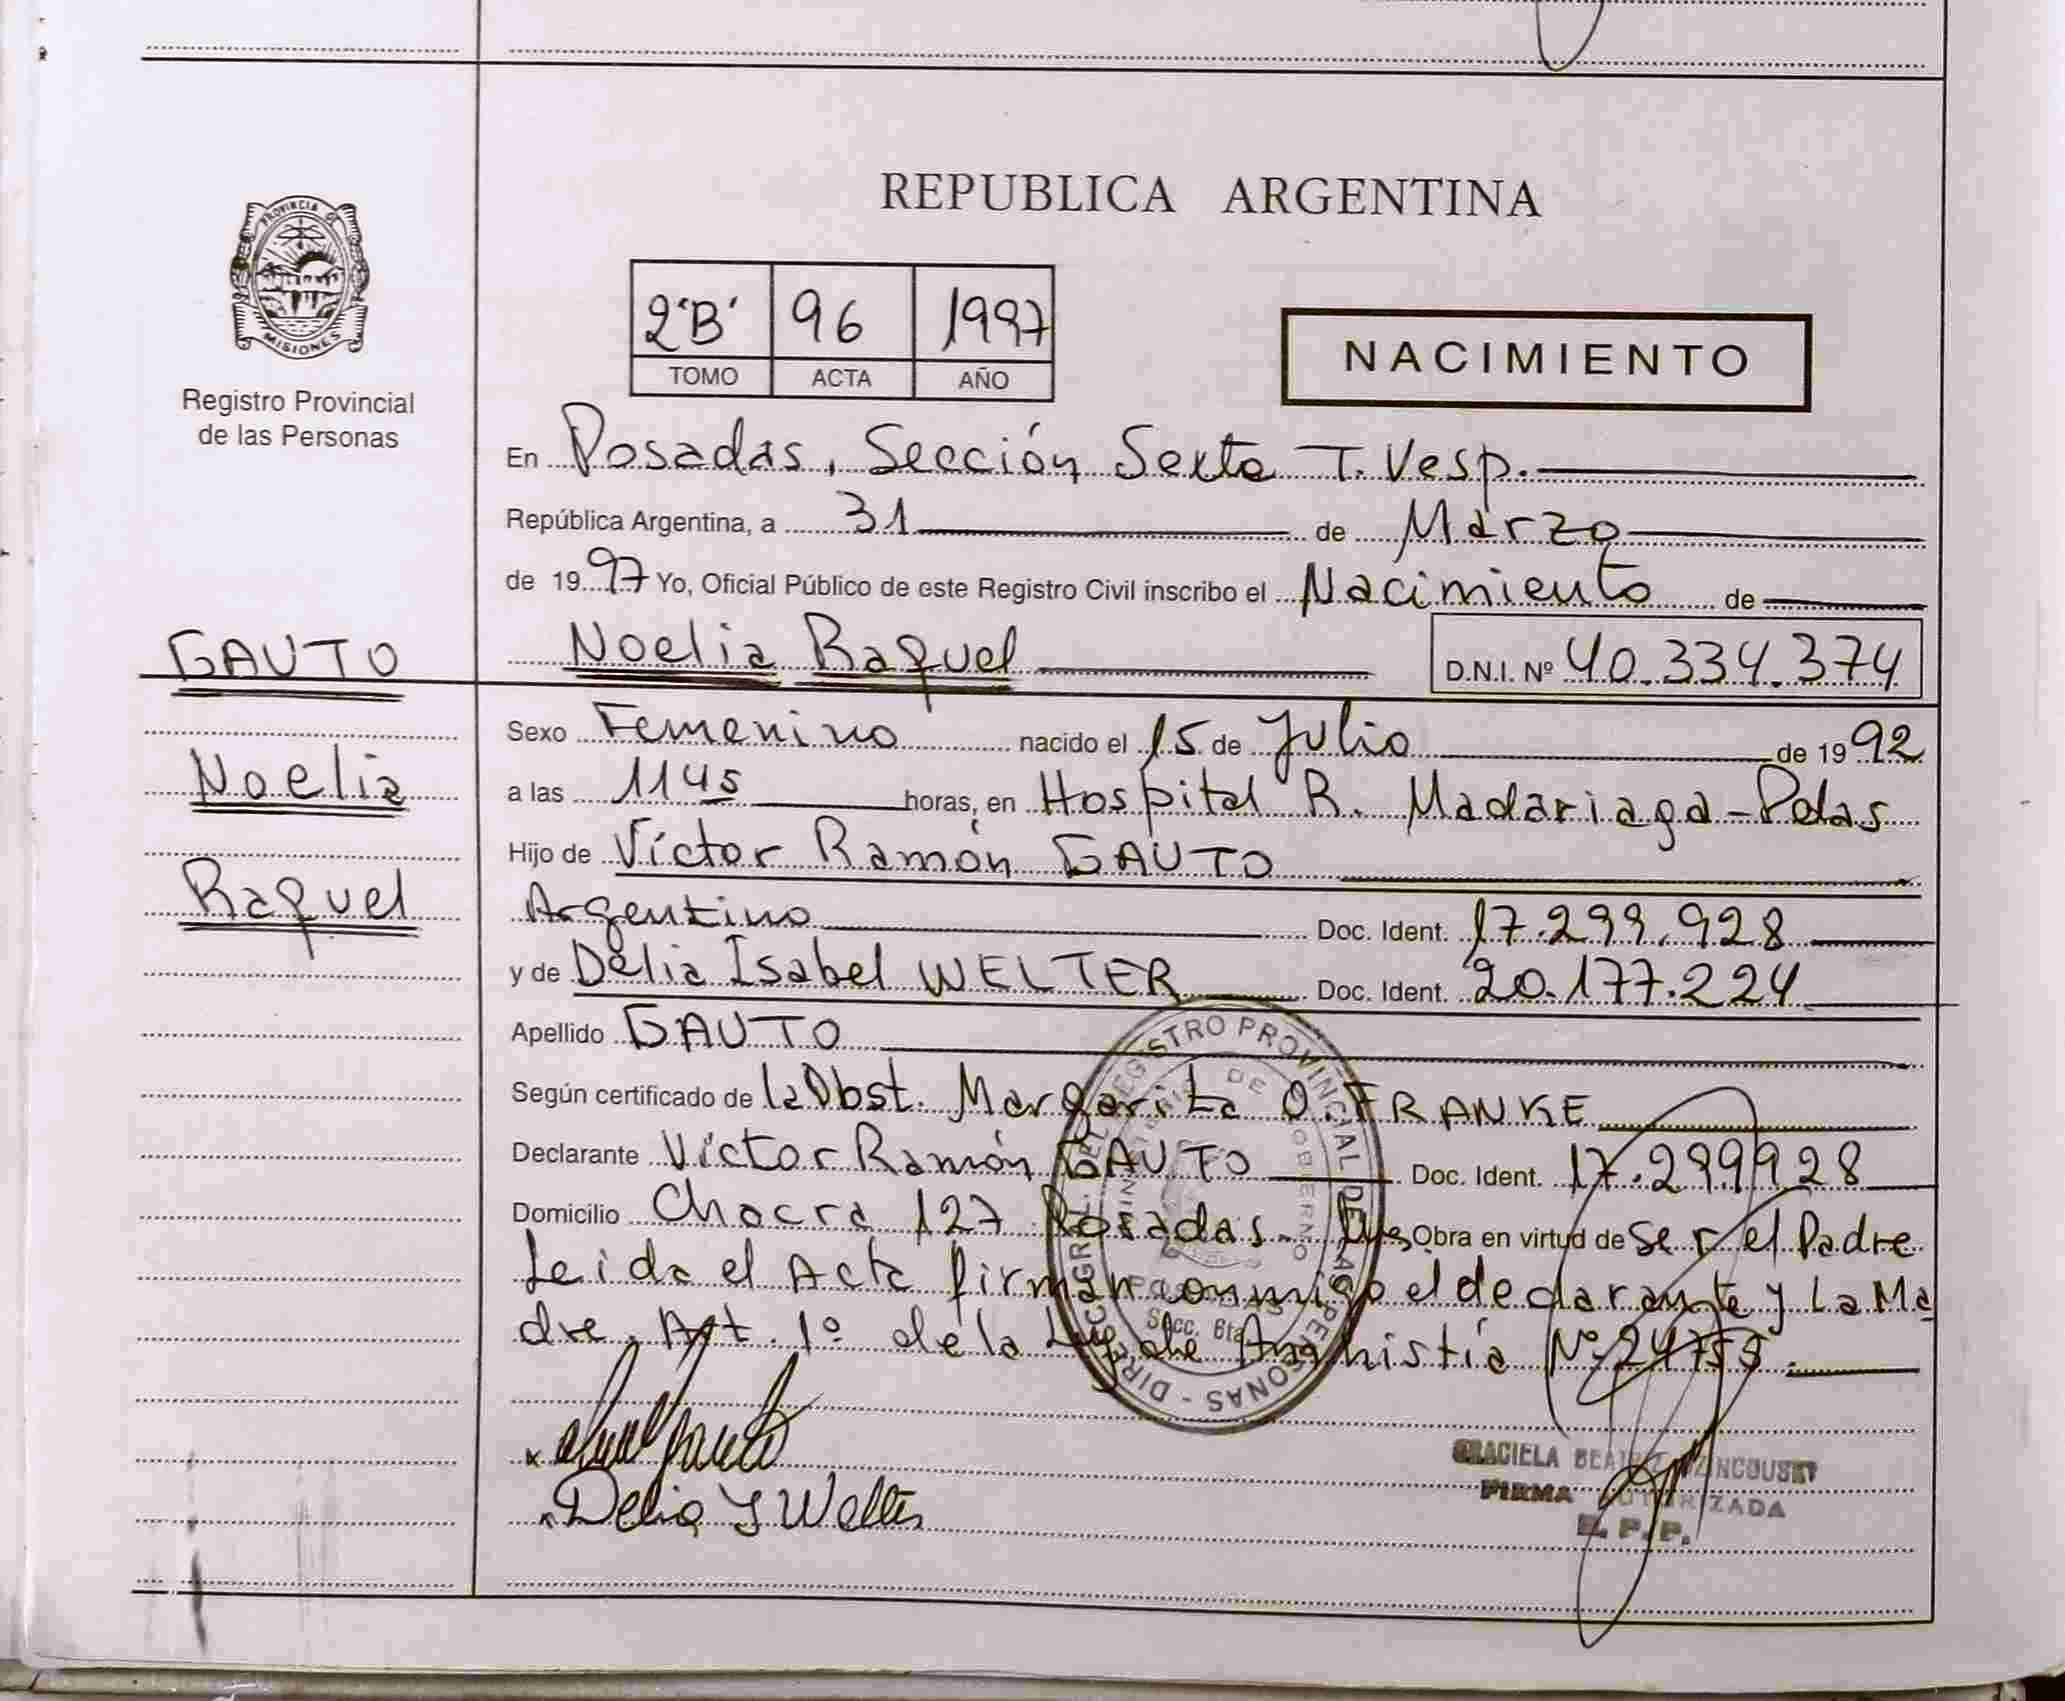 PROVINCIA DE
MISIONES
Registro Provincial
de las Personas
GAUTO
Noelia
Raquel
REPUBLICA ARGENTINA
2"B" 96 1997
TOMO ACTA AÑO
NACIMIENTO
En Posadas, Sección Sexta T. Vesp.
República Argentina, a 31 de Marzo
de 1997 Yo, Oficial Público de este Registro Civil inscribo el Nacimiento de
Noelia Raquel D.N.I. Nº 40.334.374
Sexo Femenino nacido el 15 de Julio de 1992
a las 1145 horas, en Hospital R. Madariaga-Pdas
Hijo de Víctor Ramón GAUTO
Argentino Doc. Ident. 17.299.928
y de Delia Isabel WELTER Doc. Ident. 20.177.224
Apellido GAUTO
Según certificado de la Obst. Margarita O. FRANKE
Declarante Víctor Ramón GAUTO Doc. Ident. 17.299928
Domicilio Chacra 127 Posadas- Obra en virtud de ser el Padre
Leida el Acta firman conmigo el declarante y La Ma
dre, Art. 1º de la Ley de Amnistía Nº 24755.
DIRECC. GRAL. DEL REGISTRO PROVINCIAL DE LAS PERSONAS -
MINISTERIO DE GOBIERNO
POSADAS
Secc. 6ta
x
x Delia I Welter
GRACIELA
FIRMA AUTORIZADA
R. P. P.